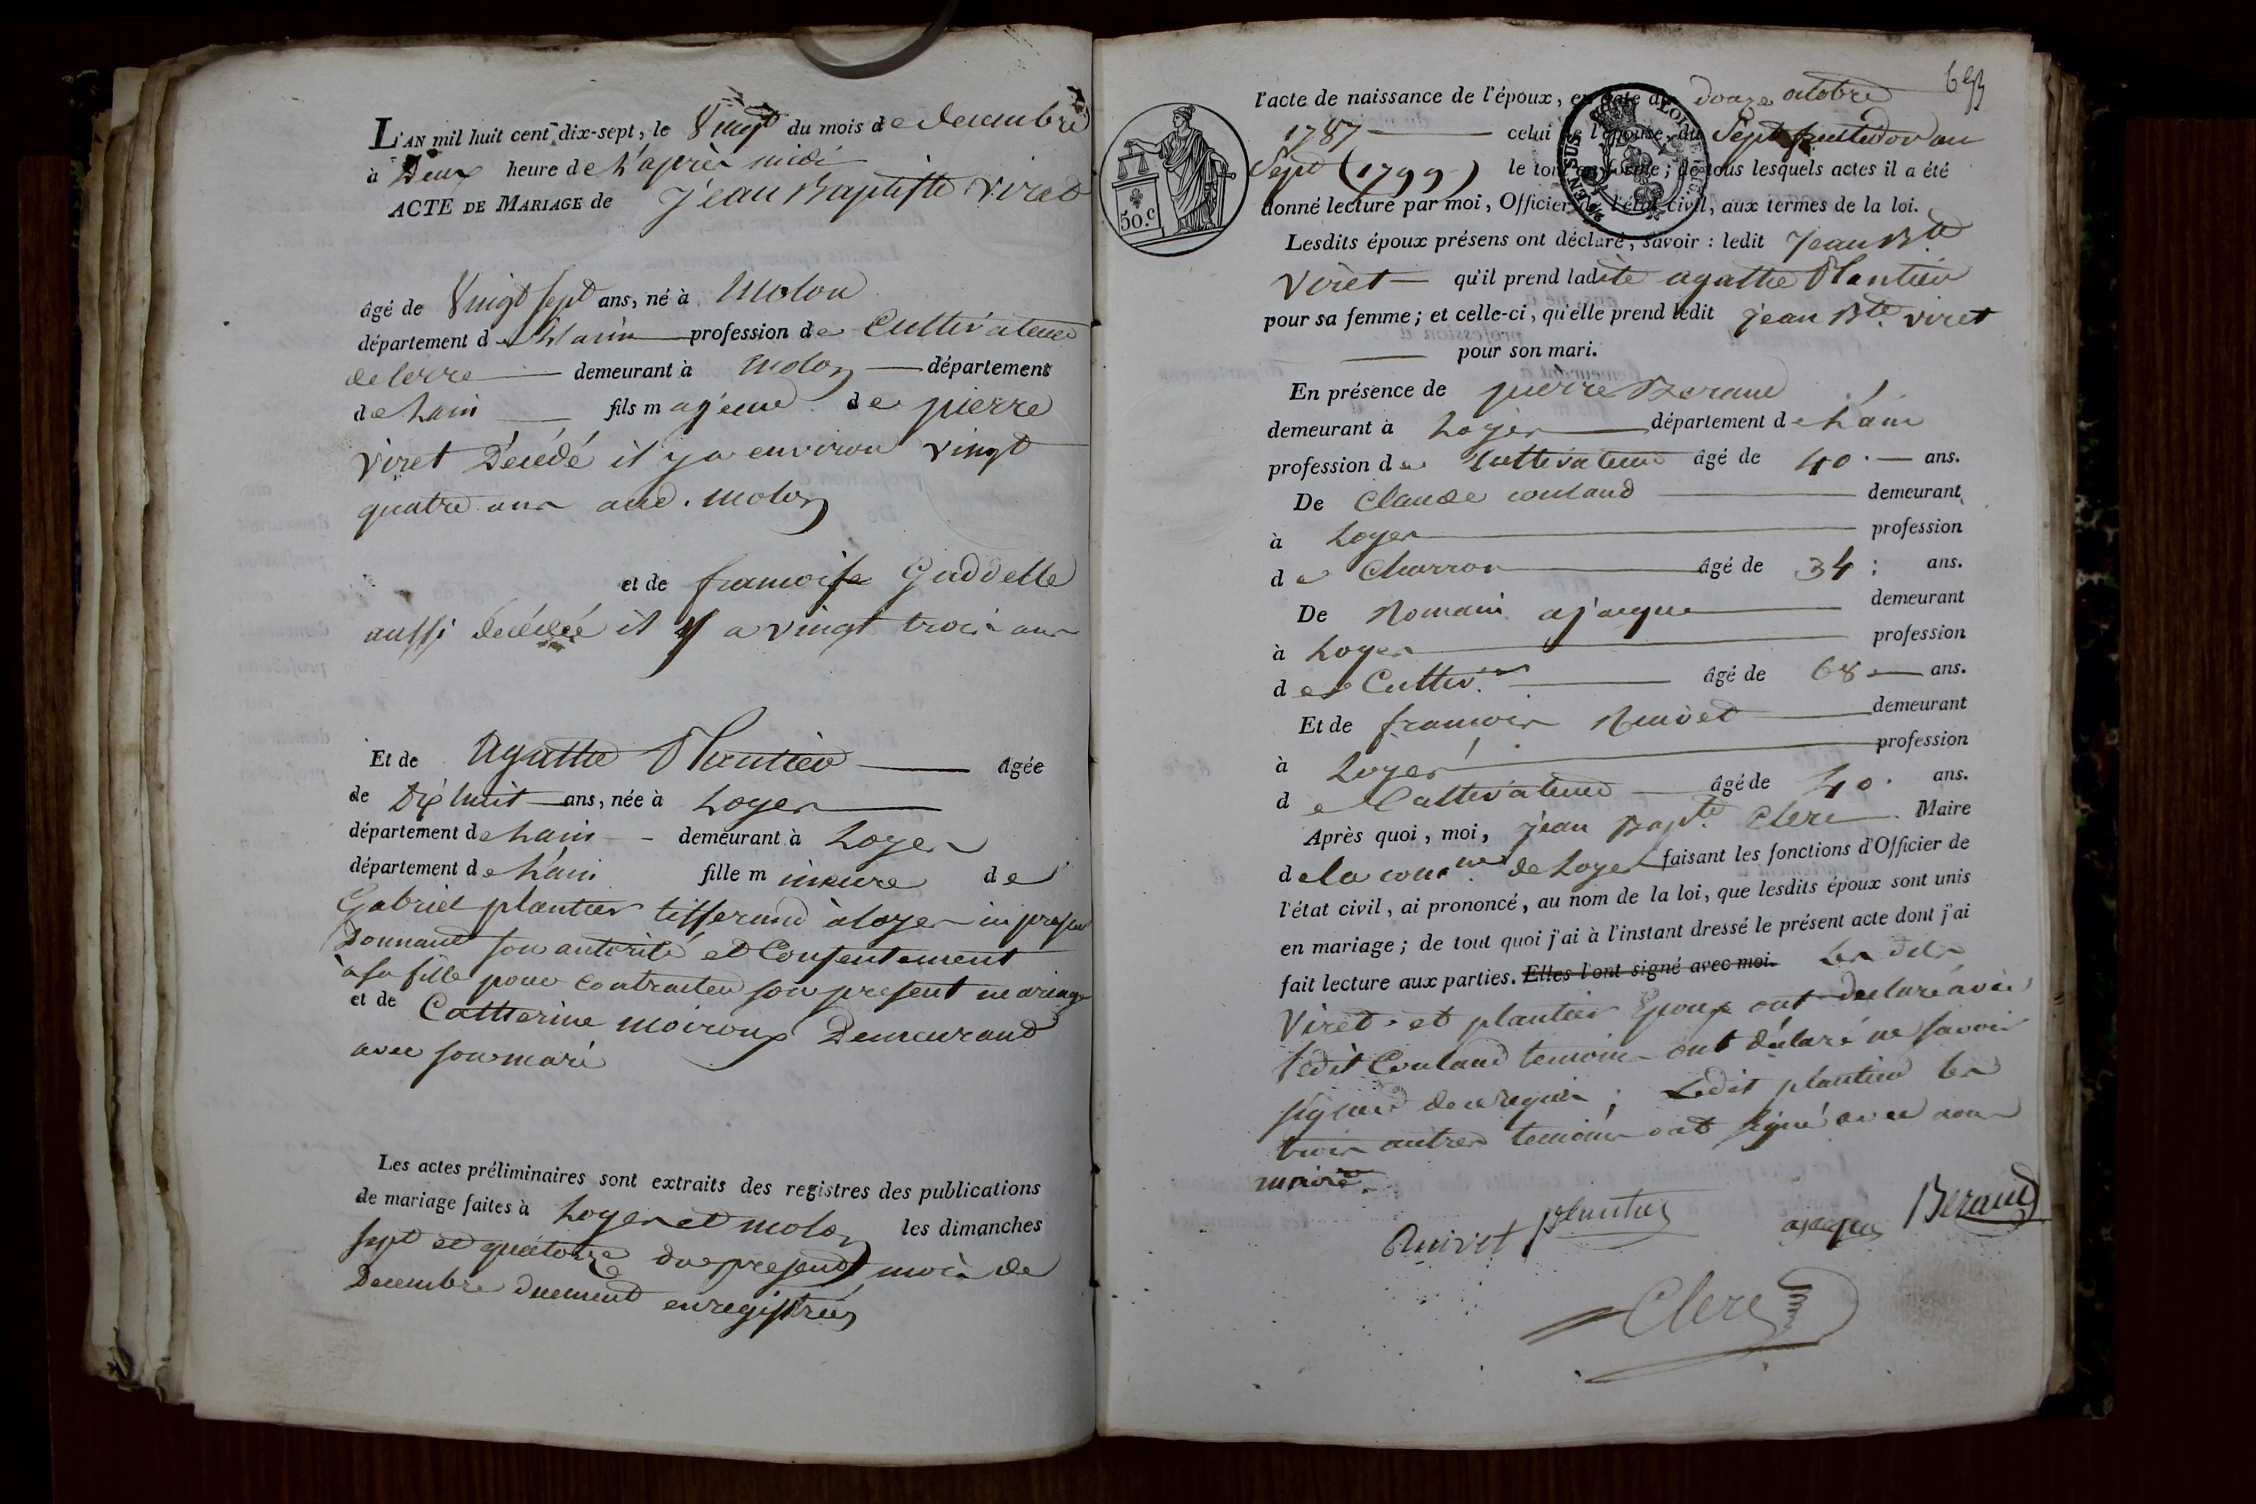 L'AN mil huit cent dix-sept, le Vingt du mois de decembre
à Deux heure de L'après midi
ACTE DE MARIAGE de Jean Baptiste Viret
âgé de Vingt sept ans, né à Molon
département de L'ain profession de Cultivateur
de terre demeurant à Molon département
de Lain fils majeur de pierre
Viret Décédé il y a environ vingt
quatre ans aud. Molon
et de francoise Guddelle
aussi decédée il y a vingt trois ans
Et de Agathe Plantier âgée
de Dix huit ans, née à Loyes
département de Lain demeurant à Loyes
département de L'ain fille mineure de
Gabriel plantier tisserand à loyes ici présent
Donnant son autorité et Consentement
à sa fille pour contracter son présent mariage
et de Catherine Moiroux Demeurant
avec son mari
Les actes préliminaires sont extraits des registres des publications
de mariage faites à Loyes et Molon les dimanches
sept et quatorze du present mois de
Decembre duement enregistrées
653
l'acte de naissance de l'époux, en date du douze octobre
1787 celui de l'épouse, du Sept fructidor an
Sept (1799) le tout en forme; de tous lesquels actes il a été
donné lecture par moi, Officier de l'état civil, aux termes de la loi.
50.c
Lesdits époux présens ont déclaré, savoir : ledit Jean Bte
Viret qu'il prend ladite agathe Plantier
pour sa femme; et celle-ci, qu'elle prend ledit jean Bte. viret
pour son mari.
En présence de pierre Beraud
demeurant à Loyes département de L'ain
profession de Cultivateur âgé de 40 ans.
De Claude coulaud demeurant
à Loyes profession
de Charron âgé de 34 ; ans.
De Romain ajacque demeurant
à Loyes profession
de Cultivr âgé de 68 ans.
Et de francois Ruivet demeurant
à Loyes profession
de Cultivateur âgé de 40. ans.
Après quoi, moi, jean Bapte. Clerc Maire
de la comune de Loyes faisant les fonctions d'Officier de
l'état civil, ai prononcé, au nom de la loi, que lesdits époux sont unis
en mariage; de tout quoi j'ai à l'instant dressé le présent acte dont j'ai
fait lecture aux parties. Elles l'ont signé avec moi. Les dits
Viret et plantier Epoux ont declaré avec
ledit Coulaud temoins ont déclaré ne savoir
signer de ce requis ; Ledit plantier les
trois autres temoins ont signé avec nous
maire.
Ruivet plantier ajacque Beraud
Clerc